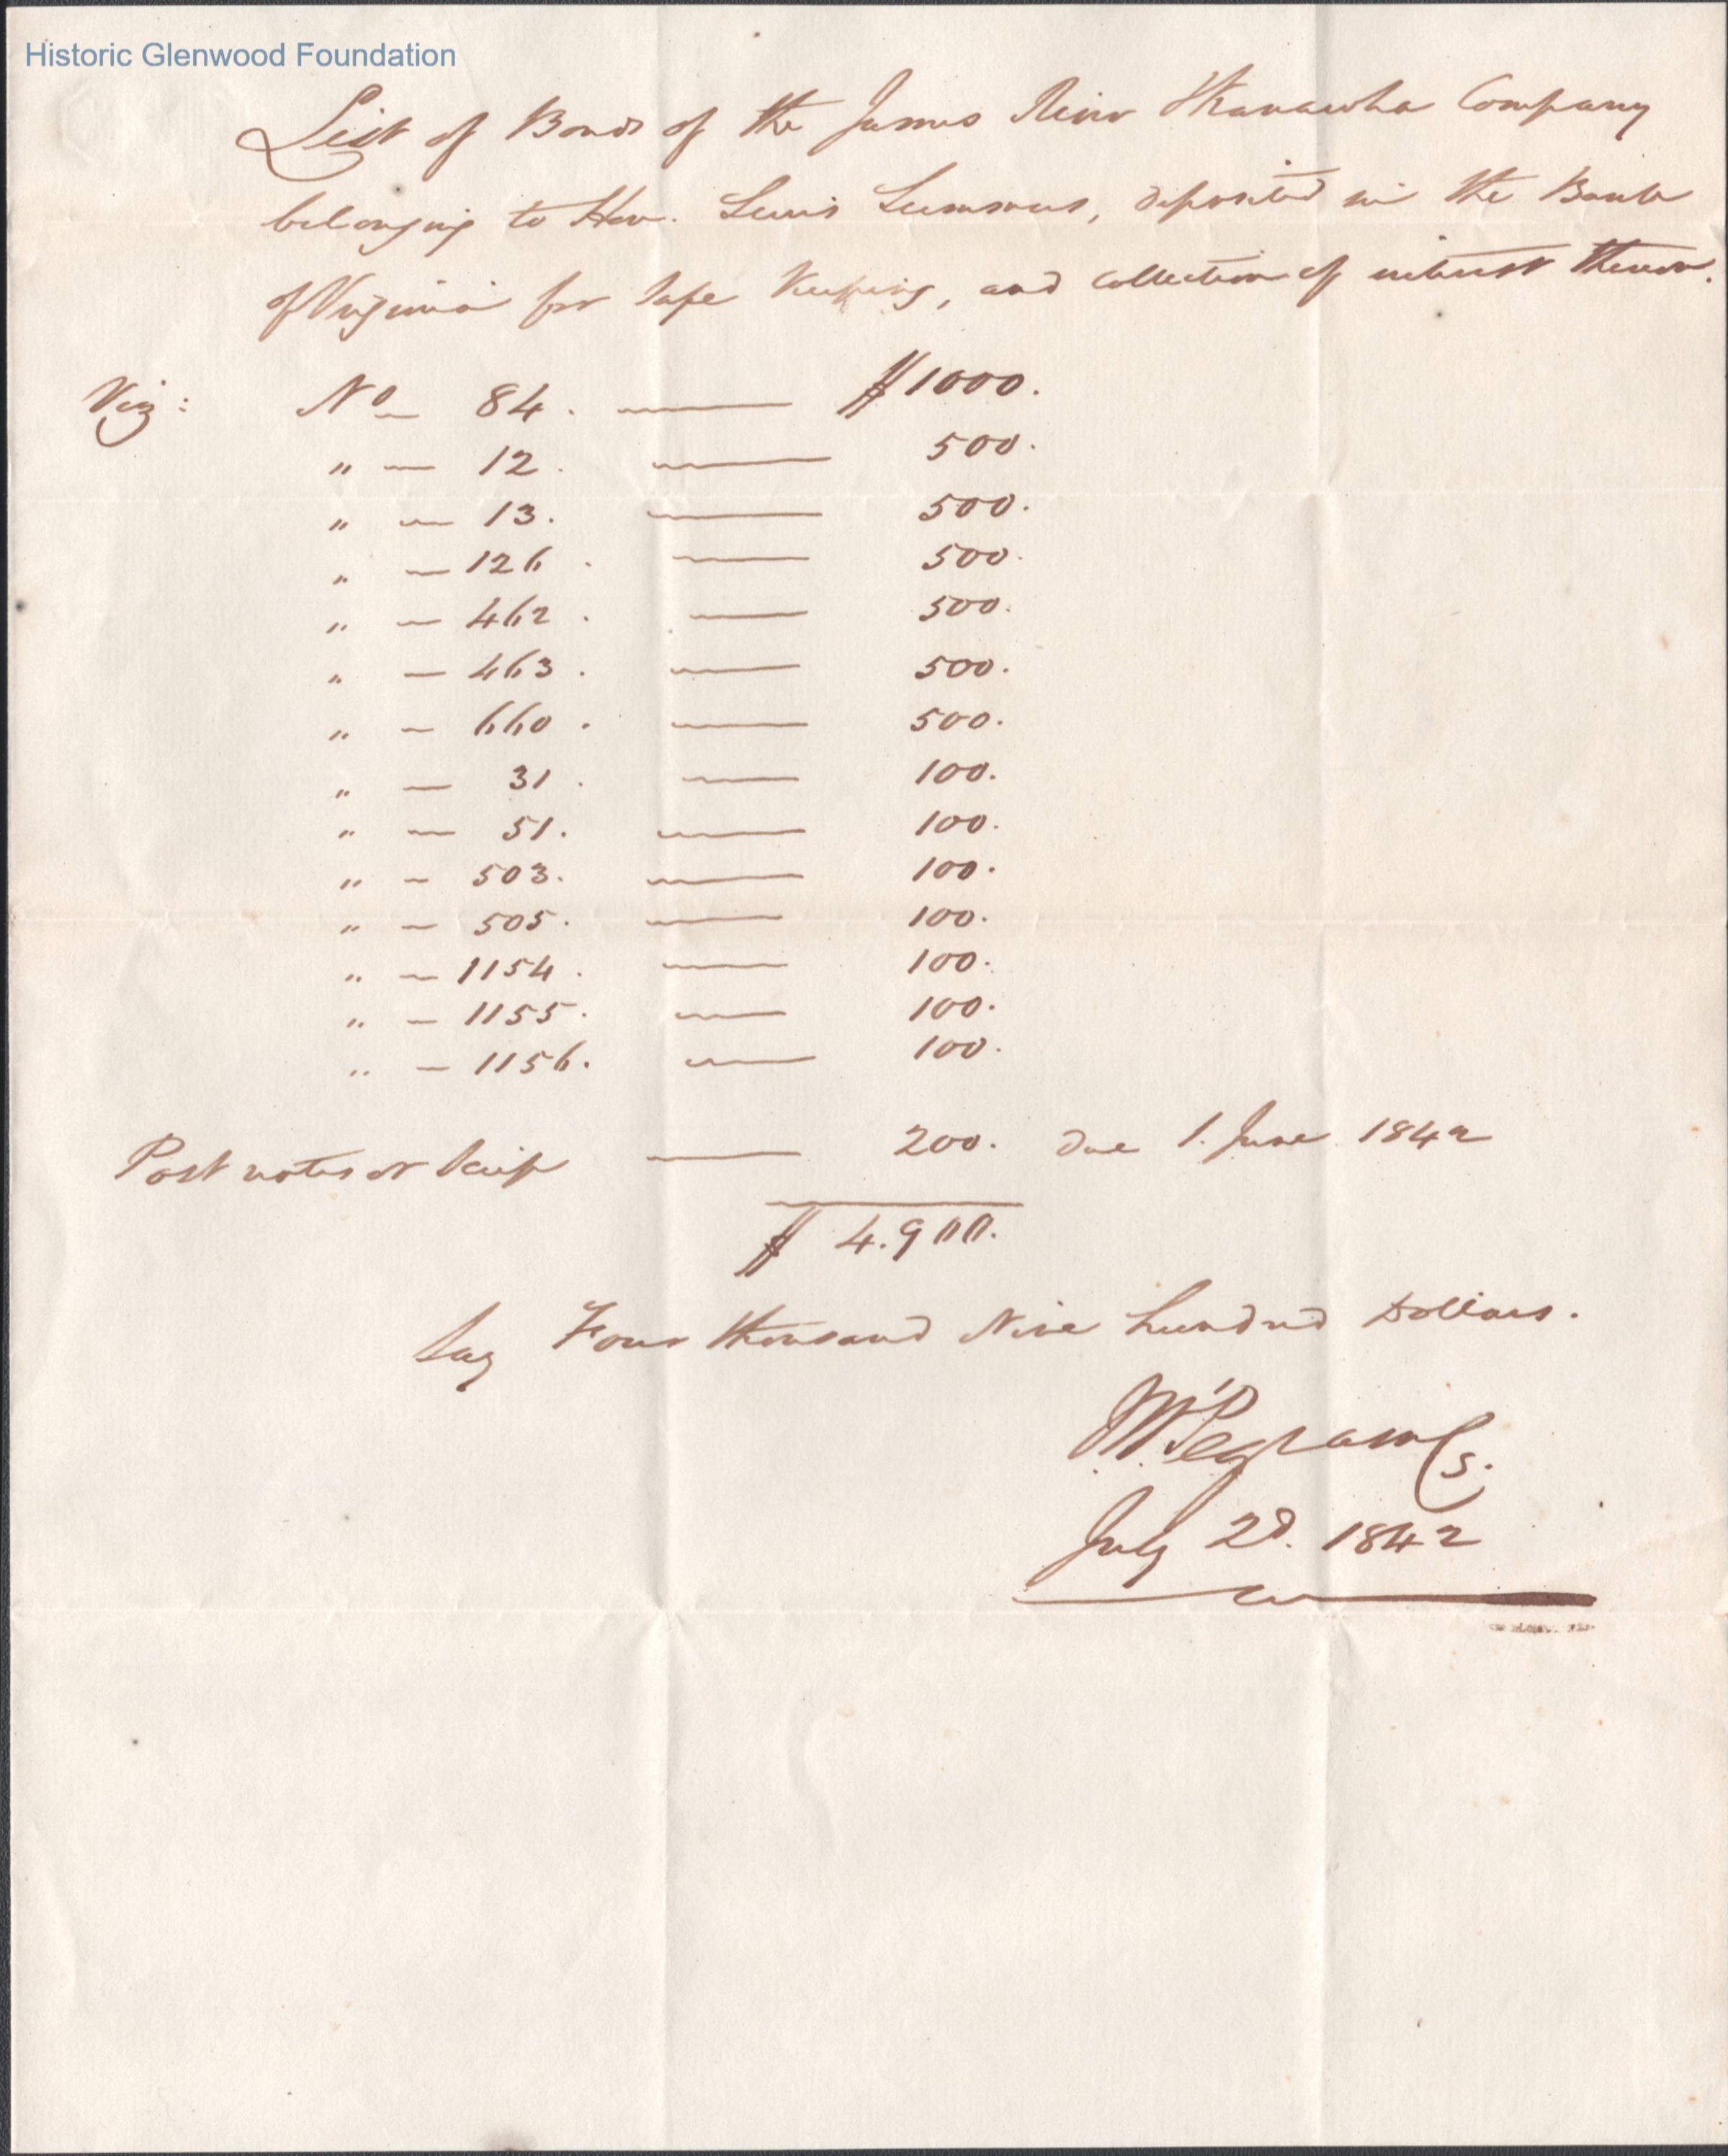 Historic Glenwood Foundation
List of Bonds of the James River & Kanawha Company
belonging to Hon. Lewis Summers, deposited in the Bank
of Virginia for safe keeping, and collection of interest thereon.
Viz: No 84. — $1000.
" — 12. — 500.
" — 13. — 500.
" — 126. — 500.
" — 462. — 500.
" — 463. — 500.
" — 660. — 500.
" — 31. — 100.
" — 51. — 100.
" — 503. — 100.
" — 505. — 100.
" — 1154. — 100.
" — 1155. — 100.
" — 1156. — 100.
Post notes or scrip — 200. due 1. June 1842
$ 4.900.
Say Four thousand Nine hundred Dollars.
Pegram Cs.
July 2d. 1842